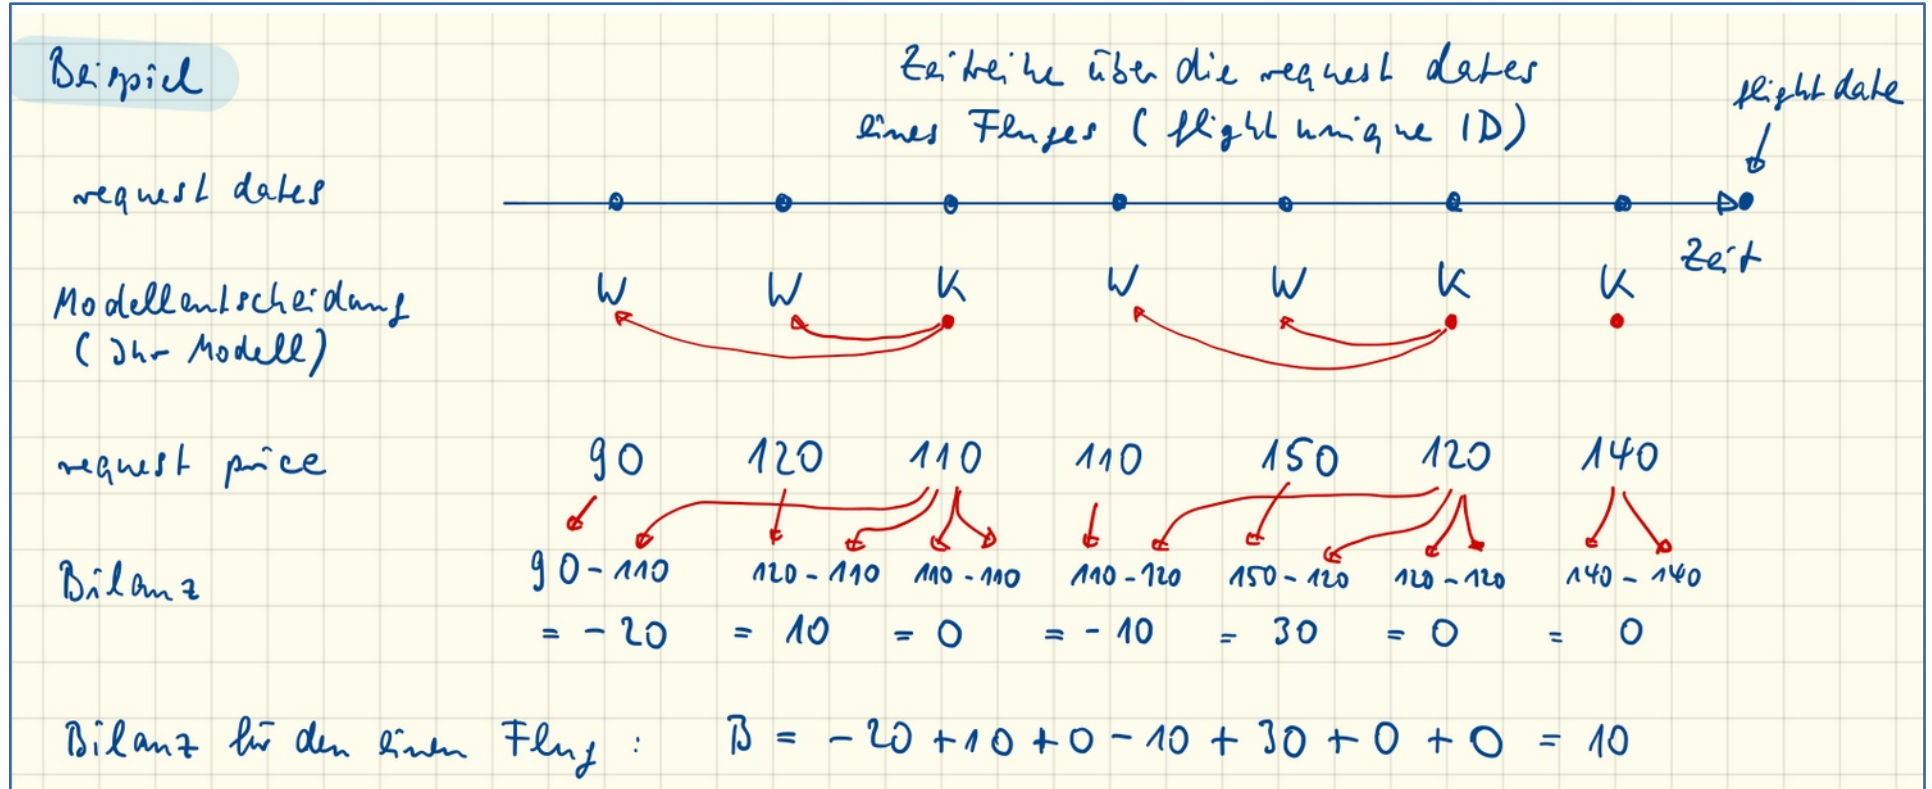 Beispiel
Zeitreihe über die request dates
eines Fluges (flight unique ID)
flight date
request dates
Zeit
Modellentscheidung
(Ihr Modell)
W W K W W K K
request price
90 120 110 110 150 120 140
Bilanz
90-110 120-110 110-110 110-120 150-120 120-120 140-140
= -20 = 10 = 0 = -10 = 30 = 0 = 0
Bilanz für den einen Flug : B = -20 +10 +0 -10 + 30 + 0 + 0 = 10